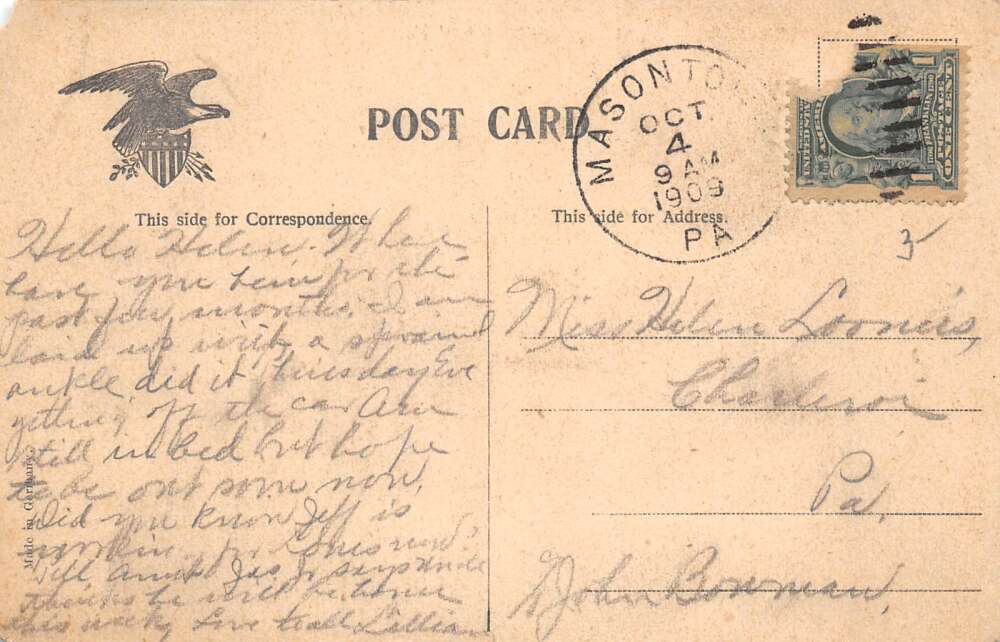 POST CARD
MASONTO
OCT
4
9 AM
1909
PA
This side for Correspondence.
This side for Address.
3
Hello Helen. Where
have you been for the
past few months. I am
laid up with a sprained
ankle did it Tuesday Eve
getting off the car Am
still in bed but hope
to be out soon now.
Did you know Jeff is
working for Jones now?
Tell Aunt
thinks he will be home
this week, Love to all Lillian
Made in Germany.
Miss Helen Loomis,
Charleroi
Pa.
John Bowman,
ONE CENT